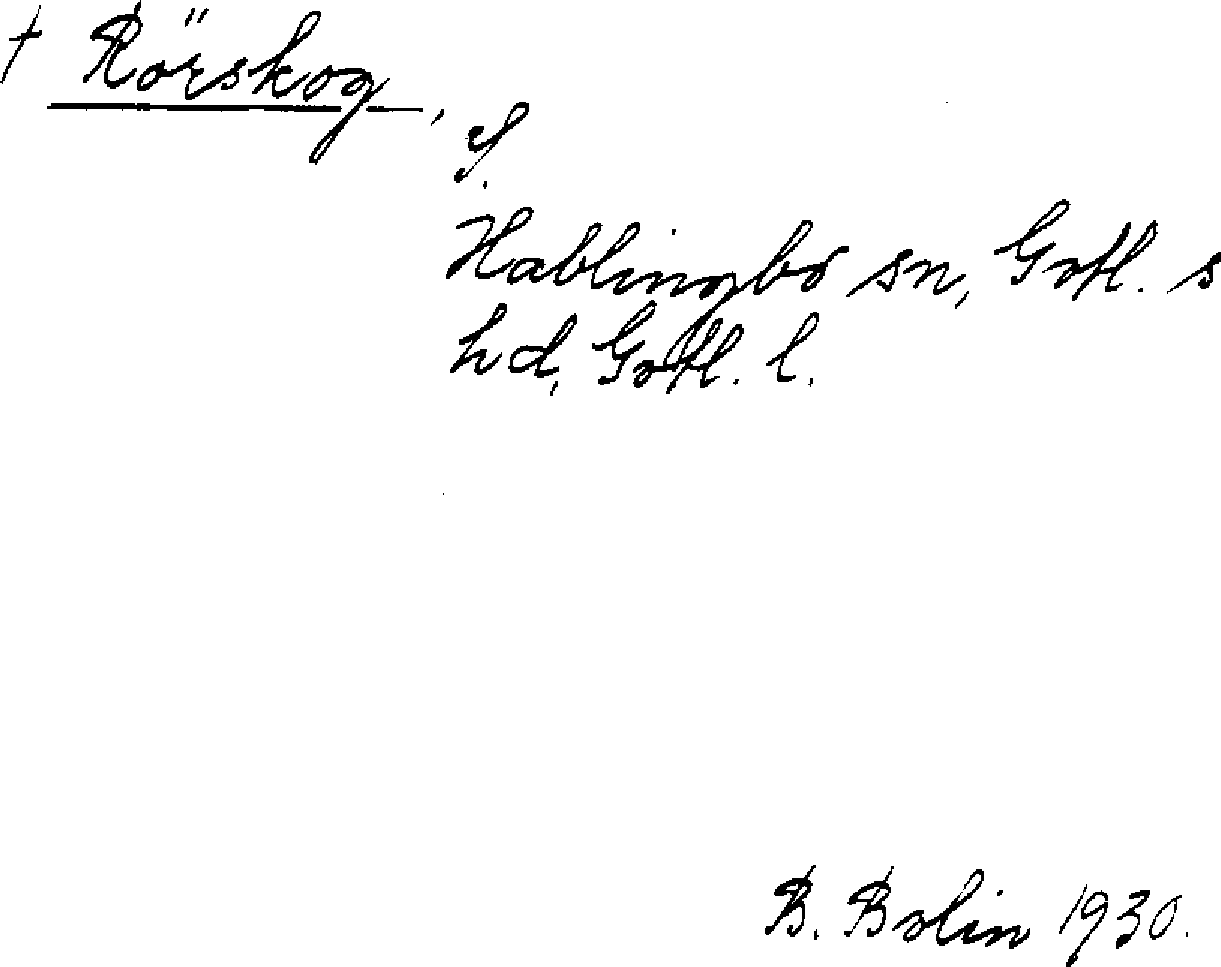 † Rörskog,
Hablingbo sn, Gotl. s
hd, Gotl. l.
B. Bolin 1930.